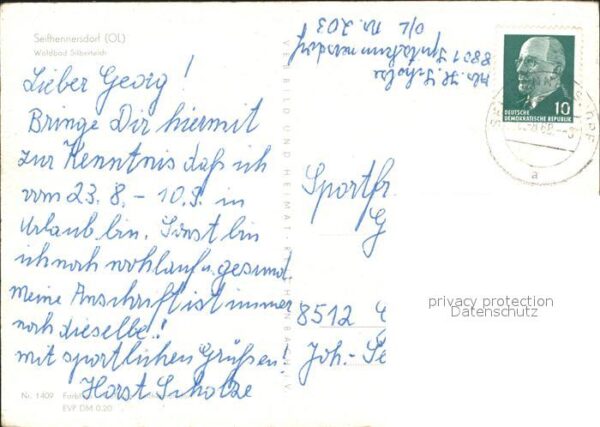 Seifhennersdorf (OL)
Waldbad Silberteich
Lieber Georg!
Bringe Dir hiermit
zur Kenntnis daß ich
vom 23.8. - 10.9. in
Urlaub bin. Sonst bin
ich noch wohlauf u. gesund.
Meine Anschrift ist immer
noch dieselbe!
mit sportlichen Grüßen!
Horst Scholze
Nr. 1409
EVP DM 0.20
VEB BILD UND HEIMAT
H. Scholze
8801
O/L Nr. 203
10
DEUTSCHE
DEMOKRATISCHE REPUBLIK
a
Sportfr.
G
8512
Joh.-Se
privacy protection
Datenschutz